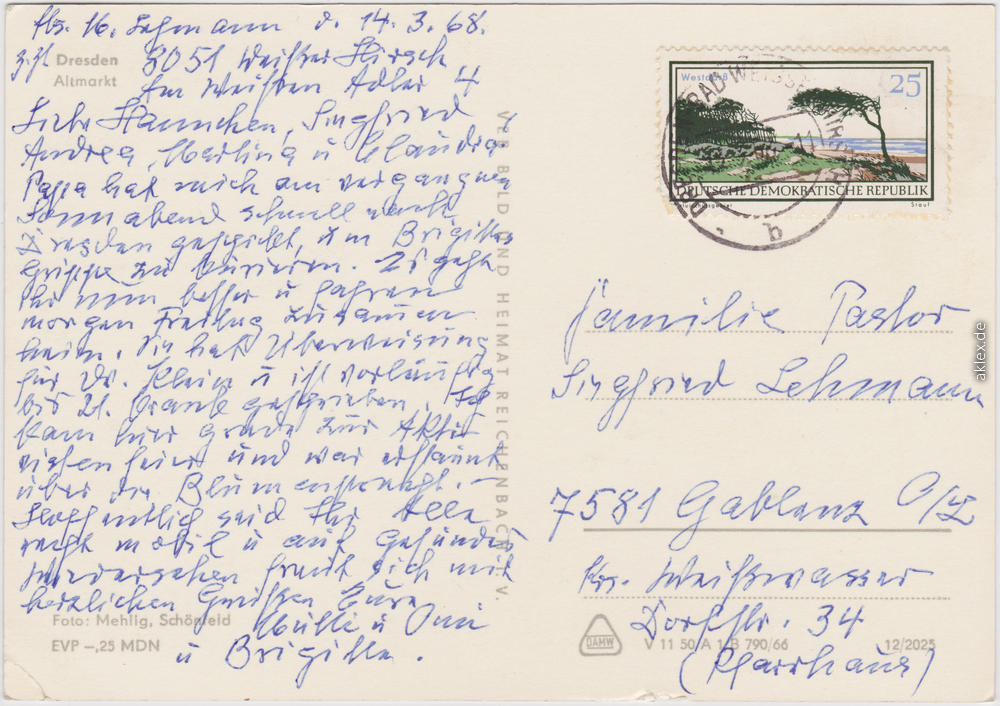 Abs. M. Lehmann d. 14.3.68.
Dresden
Altmarkt
z.Zt. 8051 Weißer Hirsch
Am Weißen Adler 4
Liebe Hannchen, Siegfried
Andrea, Merlina u Claudia
Papa hat mich am vergangnen
Sonnabend schnell nach
Dresden geschickt, um Brigittes
Grippe zu kurieren. Es geht
ihr nun besser u fahren
morgen Freitag zusammen
heim. Sie hat Überweisung
für Dr. Klein u ist vorläufig
bis 21. krank geschrieben. Ich
kam hier grade zur
feier und war erstaunt
über die
Hoffentlich seid Ihr Alle
recht mobil u auf Gesundes
Wiedersehen freut sich mit
herzlichen Grüssen Eure
Mutti u Omi
u Brigitte.
Foto: Mehlig, Schönfeld
EVP –,25 MDN
VEB BILD UND HEIMAT REICHENBACH I. V.
25
DEUTSCHE DEMOKRATISCHE REPUBLIK
Stauf
b
Familie Pastor
Siegfried Lehmann
7581 Gablenz O/L
Krs. Weißwasser
Dorfstr. 34
(Pfarrhaus)
DAMW
V 11 50 A 1/B 790/66
12/2025
aklex.de